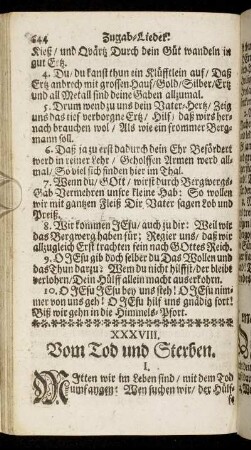 244 Zugab-Lieder.
Kieß / und Qvärtz Durch dein Güt wandeln in
gut Ertz.
4. Du / du kanst thun ein Klüfftlein auf / Daß
Ertz anbrech mit grossen Hauf / Gold / Silber / Ertz
und all Metall sind deine Gaben allzumal.
5. Drum wend zu uns dein Vater-Hertz / Zeig
uns das tief verborgne Ertz / Hilf / daß wirs her-
nach brauchen wol / Als wie ein frommer Berg-
mann soll.
6. Daß ja zu erst dadurch dein Ehr Befördert
werd in reiner Lehr / Geholffen Armen werd all-
mal / So viel sich finden hier im Thal.
7. Wenn du / GOtt / wirst durch Bergwercks
Gab Vermehren unsre kleine Hab: So wollen
wir mit gantzen Fleiß Dir Vater sagen Lob und
Preiß.
8. Wir kommen JEsu / auch zu dir: Weil wir
das Bergwerg haben für; Regier uns / daß wir
allzugleich Erst trachten fein nach GOttes Reich.
9. O JEsu gib doch selber du Das Wollen und
das Thun darzu: Wem du nicht hilffst / der bleibt
verlohrn / Dein Hülff allein macht auserkohrn.
10. O HErr JEsu bey uns steh! O JEsu nim-
mer von uns geh! O JEsu hilf uns gnädig fort!
Biß wir gehn in die Himmels-Pfort.
XXXVIII.
Vom Tod und Sterben.
I.
MItten wir im Leben sind / mit dem Tod
umfangen: Wen suchen wir / der Hülf-